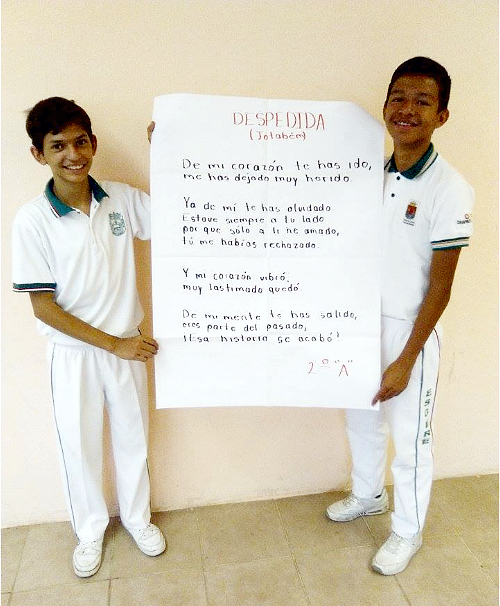 DESPEDIDA
(Jotabém)
De mi corazón te has ido,
me has dejado muy herido.
Ya de mí te has olvidado
Estuve siempre a tu lado
porque sólo a ti he amado,
tú me habías rechazado.
Y mi corazón vibró,
muy lastimado quedó.
De mi mente te has salido,
eres parte del pasado,
¡Esa historia se acabó!
2° "A"